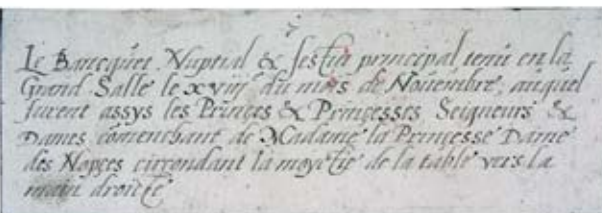 Le Bancquet Nuptial & festin principal tenu en la
Grand Salle le xviij du mois de Nouembre, auquel
furent assys les Princes & Princesses, Seigneurs &
Dames comenchant de Madame la Princesse Dame
des Nopces cirrondant la moyctie de la table vers la
main droicte